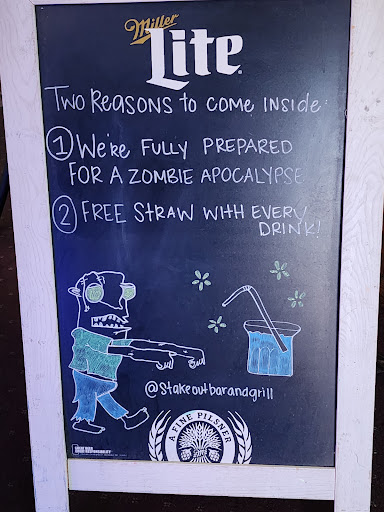 Miller
Lite
Two Reasons to come inside:
1 We're FULLY PREPARED
FOR A ZOMBIE APOCALYPSE
2 FREE STRAW WITH EVERY
DRINK!
@stakeoutbarandgrill
A FINE PILSNER